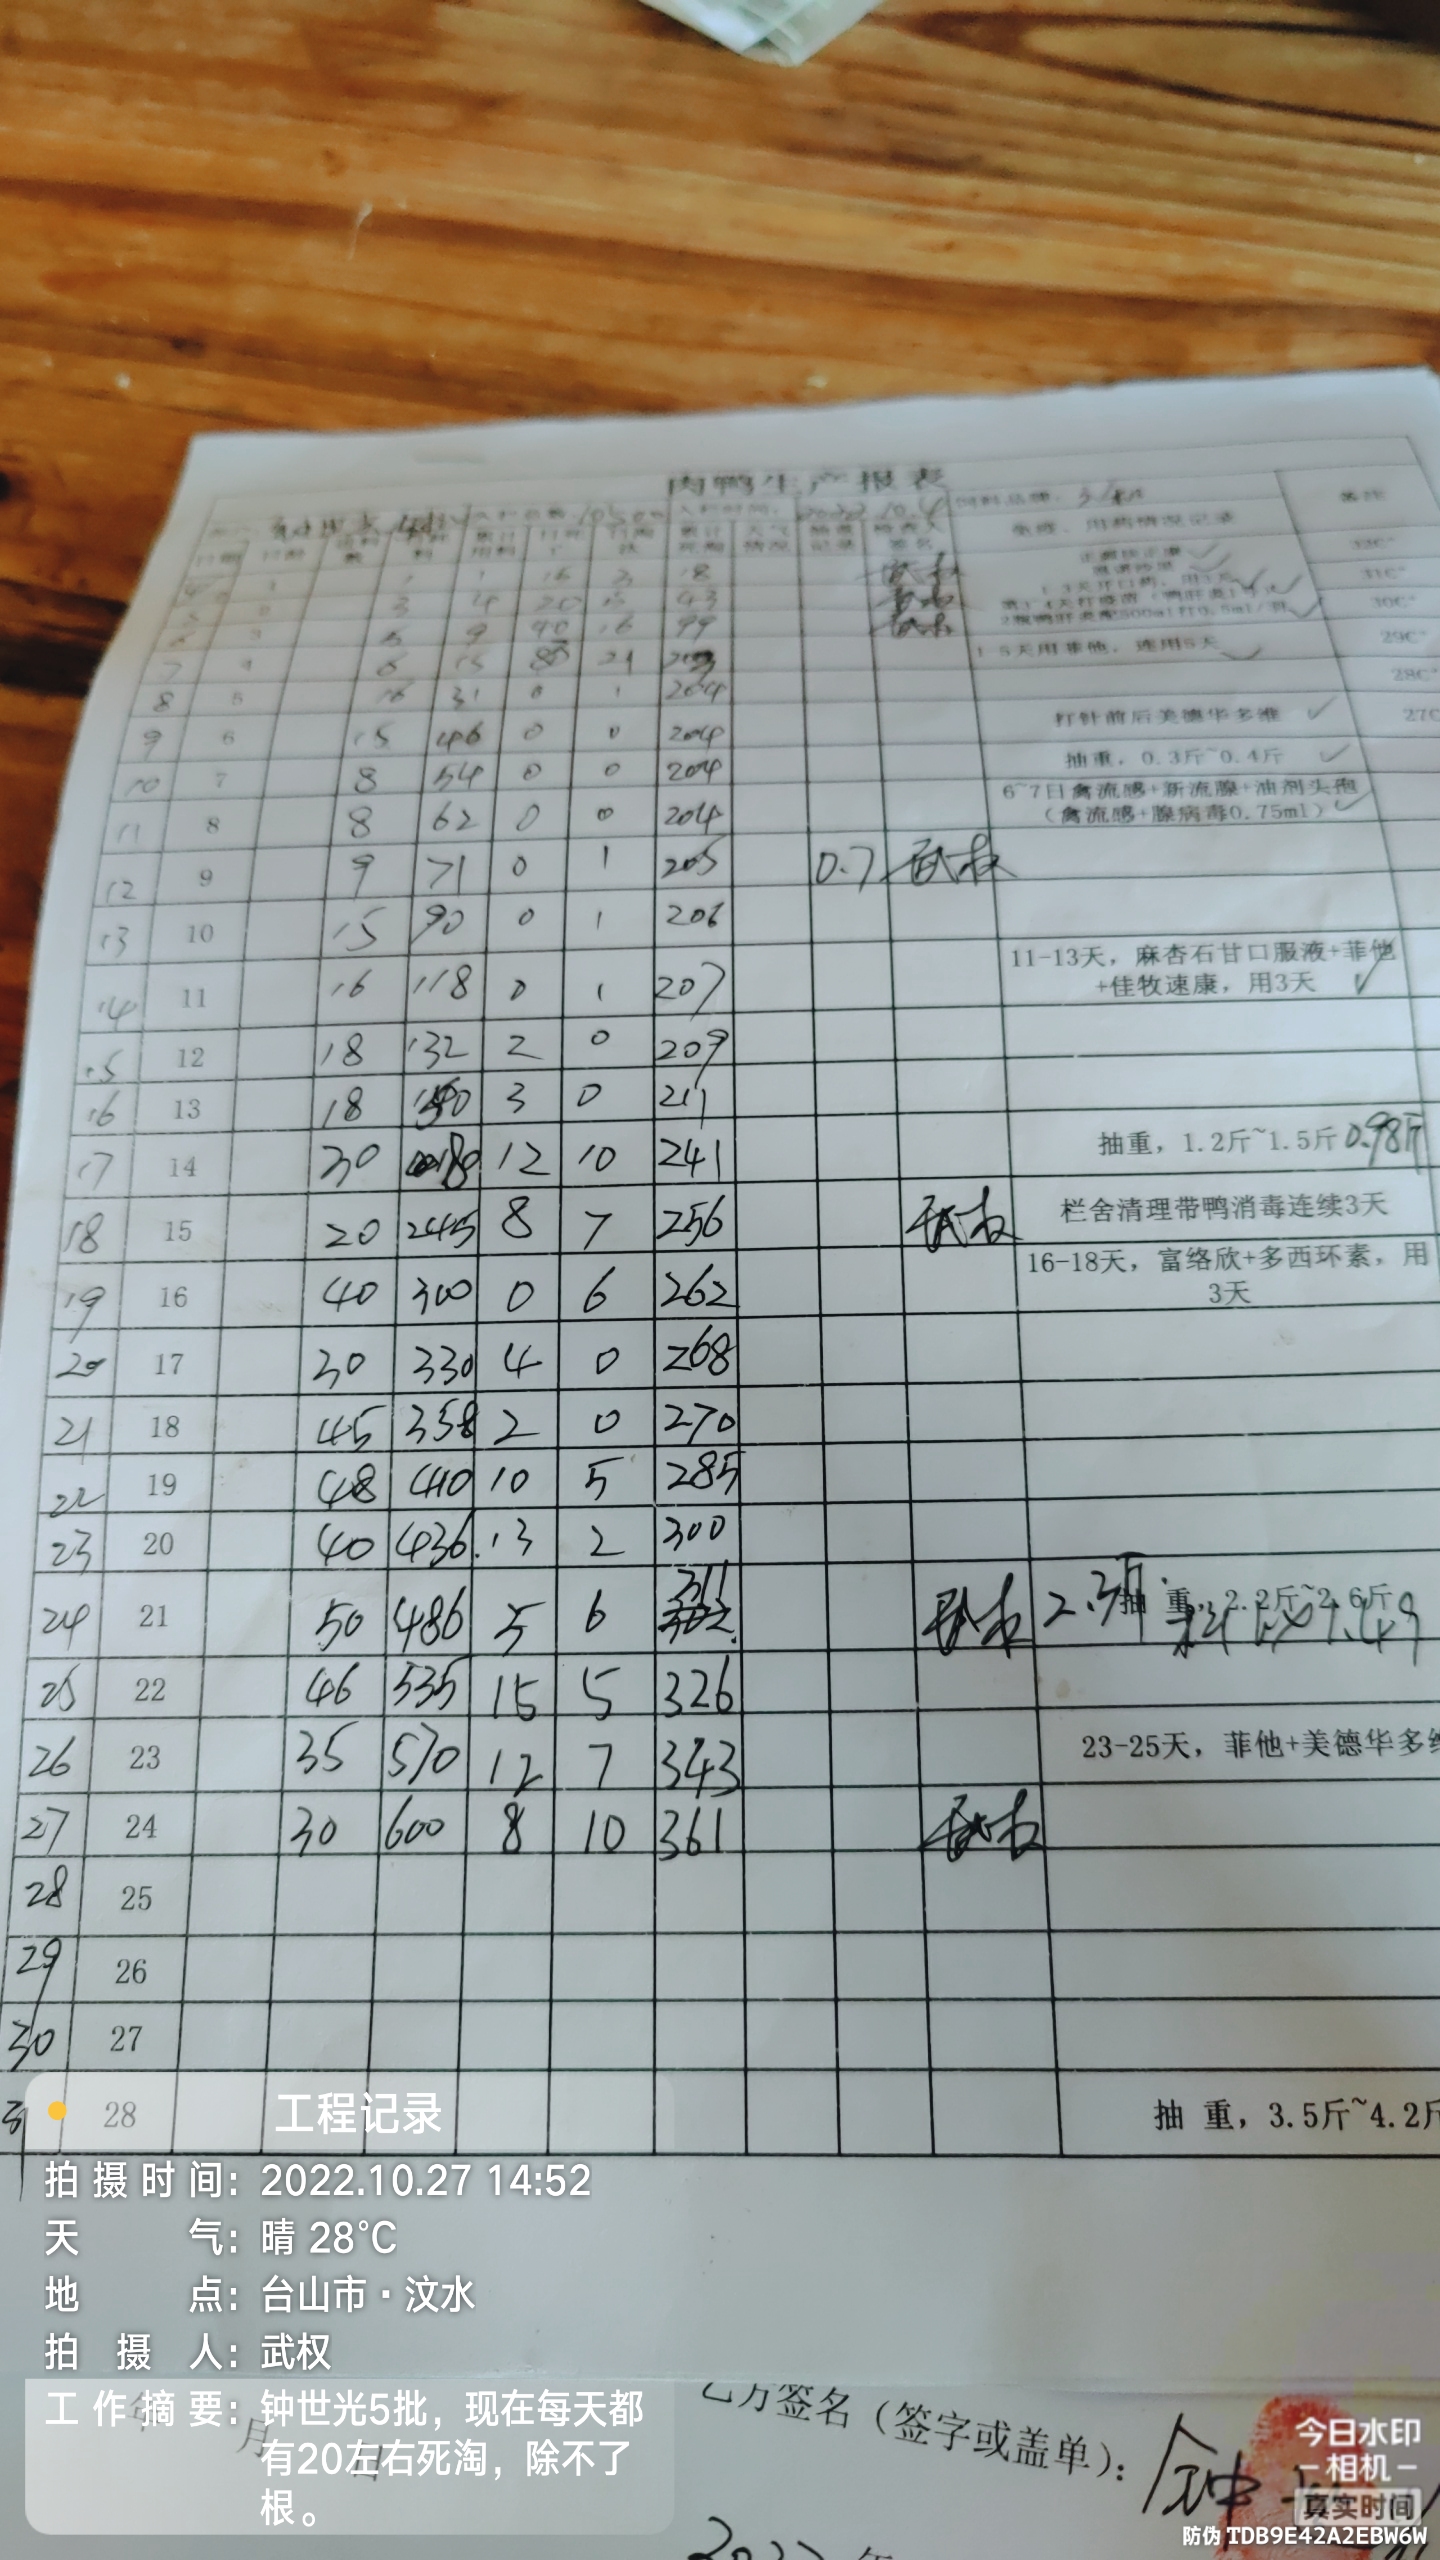 肉鸭生产报表
2022.10.4
备注
日期 日龄 累计用料 累计死淘 天气情况 签名
免疫、用药情况记录
4 1 1 1 16 2 18 武权 32C°
5 2 3 4 20 43 武权 31C°
6 3 5 9 40 16 99 武权 30C°
7 4 6 15 80 21 1-5天用菲他，连用5天 29C°
8 5 16 31 0 1 204 28C°
9 6 15 46 0 0 204 打针前后美德华多维 27C
10 7 8 54 0 0 204 抽重，0.3斤~0.4斤
11 8 8 62 0 0 204 6~7日禽流感+新流腺+油剂头孢
（禽流感+腺病毒0.75ml）
12 9 9 71 0 1 205 0.7 武权
13 10 15 90 0 1 206
14 11 16 118 0 1 207 11-13天，麻杏石甘口服液+菲他
+佳牧速康，用3天
15 12 18 132 2 0 209
16 13 18 150 3 0 211
17 14 30 180 12 10 241 抽重，1.2斤~1.5斤 0.98斤
18 15 20 245 8 7 256 武权 栏舍清理带鸭消毒连续3天
19 16 40 300 0 6 262 16-18天，富络欣+多西环素，用
3天
20 17 30 330 4 0 268
21 18 45 358 2 0 270
22 19 48 440 10 5 285
23 20 40 436 13 2 300
24 21 50 486 5 6 311 武权 2.3斤 抽 重，2.2斤~2.6斤
25 22 46 535 15 5 326
26 23 35 570 12 7 343 23-25天，菲他+美德华多维
27 24 30 600 8 10 361 武权
28 25
29 26
30 27
31 28 抽 重，3.5斤~4.2斤
工程记录
拍摄时间：2022.10.27 14:52
天气：晴 28°C
地点：台山市·汶水
拍摄人：武权
工作摘要：钟世光5批，现在每天都
有20左右死淘，除不了
根。
年 月 日
乙方签名（签字或盖单）：钟
2022年
今日水印
相机
真实时间
防伪 TDB9E42A2EBW6W